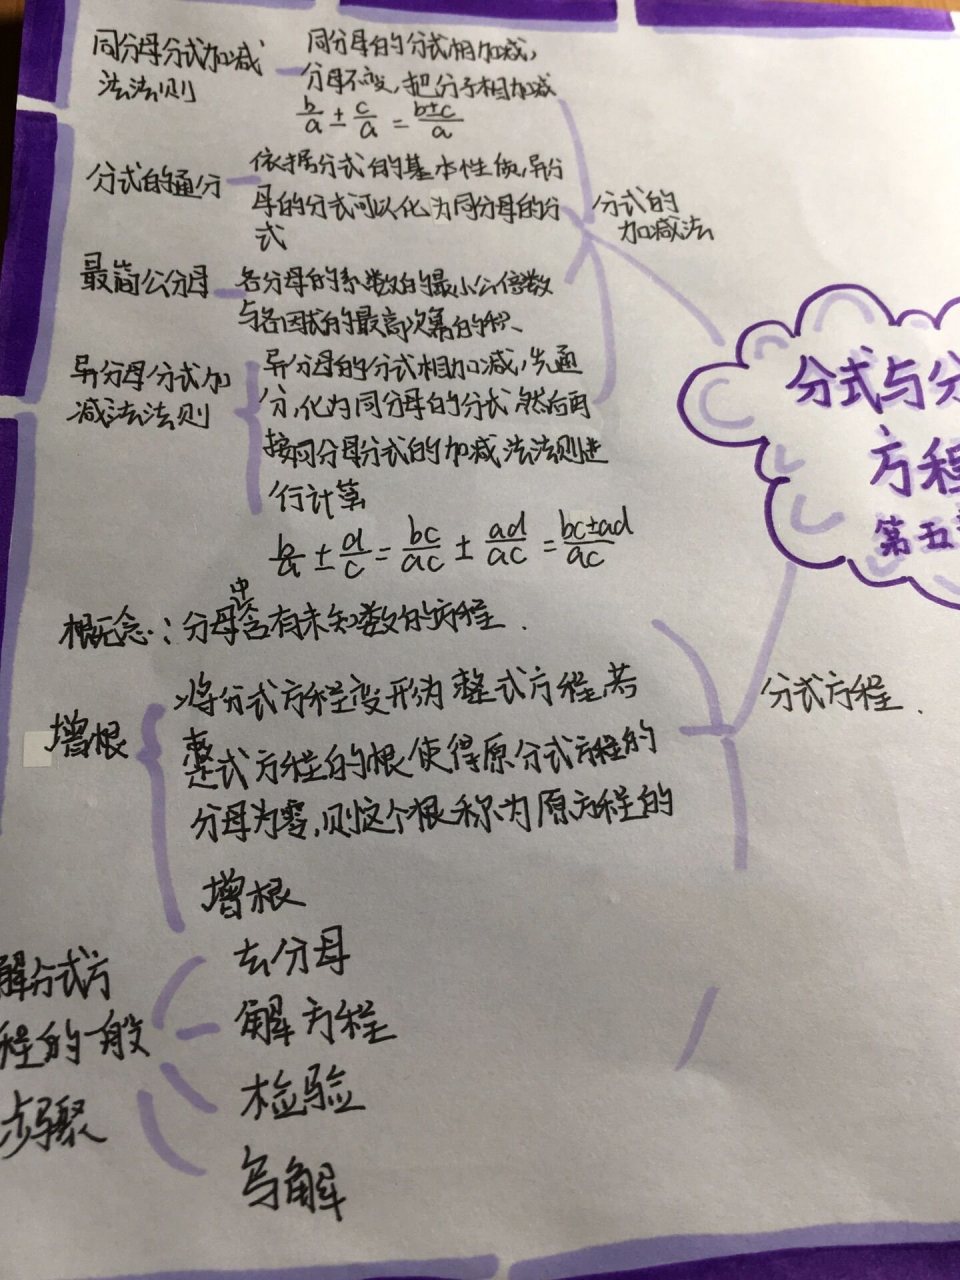 同分母分式加减
法法则
同分母的分式相加减,
分母不变,把分子相加减
b/a ± c/a = b±c/a
分式的通分
依据分式的基本性质,异分
母的分式可以化为同分母的分
式
最简公分母
各分母的系数的最小公倍数
与各因式的最高次幂的积、
异分母分式加
减法法则
异分母的分式相加减,先通
分,化为同分母的分式,然后再
按同分母分式的加减法法则进
行计算
b/a ± d/c = bc/ac ± ad/ac = bc±ad/ac
分式的
加减法
分式与分
方程
第五
概念:分母中含有未知数的方程.
增根
将分式方程变形为整式方程,若
整式方程的根使得原分式方程的
分母为零,则这个根称为原方程的
增根
分式方程.
解分式方
程的一般
步骤
去分母
解方程
检验
写解